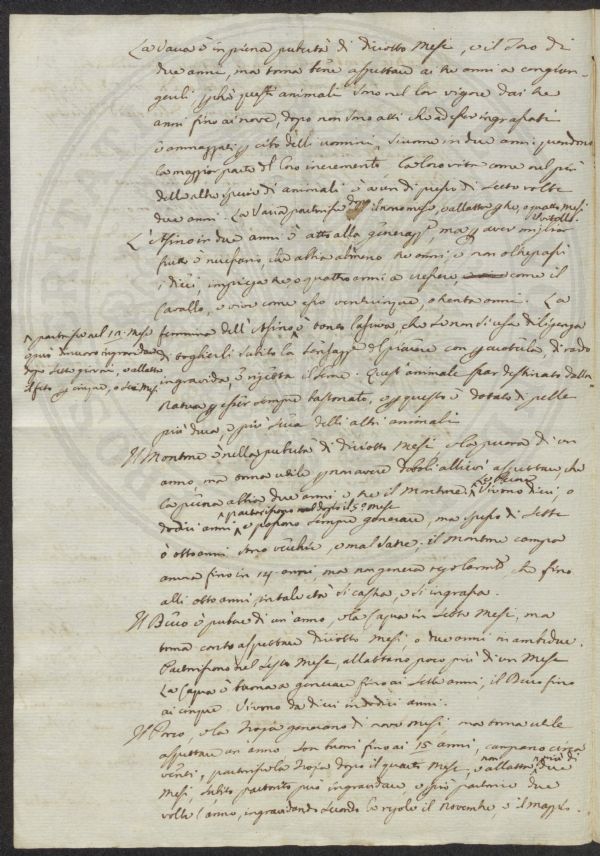 La Vacca è in piena pubertà di diciotto Mesi, e il Toro di
due anni, ma torna bene aspettare ai tre anni a congiun-
gerli perchè questi animali sono nel lor vigore dai tre
anni fino ai nove, dopo non sono atti che ad esser ingrassati
e ammazzati per cibo delli uomini, siccome in due anni prendono
la maggior parte del loro incremento, La loro vita come nel più
delle altre specie di animali è a un di presso di sette volte
due anni. La Vacca partorisce dopo il nono mese, e allatta tre, o quattro Mesi
i Vitelli.
L'Asino in due anni è atto alla generazione, ma per aver miglior
frutto è necessario, che abbia almeno tre anni, e non oltrepassi
i dieci, impiega tre o quattro anni a crescere, come il
Cavallo, e vive come esso venticinque, o trenta anni. La
femmina dell'Asino è tanto lasciva, che se non si usa diligenza
di togherli subito la sensazione del piacere con di rado
ingravida, e rigetta il seme. Quest'animale par destinato dalla
Natura per esser sempre bastonato, e per questo è dotato di pelle
più dura, e più secca delli altri animali
partorisce nel 12. Mese
può di nuovo ingravidare
dopo sette giorni, e allatta
il feto per cinque, o sei Mesi
Il Montone è nella pubertà di diciotto Mesi e la pecora di un
anno, ma torna utile per non avere deboli allievi aspettare, che
la pecora abbia due anni e tre il Montone. Le Pecore Vivono dieci, o
dodici anni, partoriscono dopo il 5.o mese
e possono sempre generare, ma spesso di sette
o otto anni sono vecchie, e malsane; il montone campa
ancora fino in 14 anni, ma non genera regolarmente che fino
alli otto anni, in tale età si castra, e si ingrassa.
Il Becco è pubere di un anno, e la Capra in sette Mesi, ma
torna conto aspettare diciotto Mesi, o due anni in ambidue.
Partoriscono nel sesto Mese, allattano poco più di un Mese
La Capra è buona a generare fino ai sette anni, il Becco fino
ai cinque. Vivono da dieci in dodici anni.
Il Porco, e la Troja generano di nove Mesi, ma torna utile
aspettare un anno. Son buoni fino ai 15 anni, campano circa
venti, partorisce la Troja dopo il quarto Mese, e allatta non più di due
Mesi, subito partorito può ingravidare e può partorire due
volte l'anno, ingravidando secondo le regole il Novembre, e il Maggio.